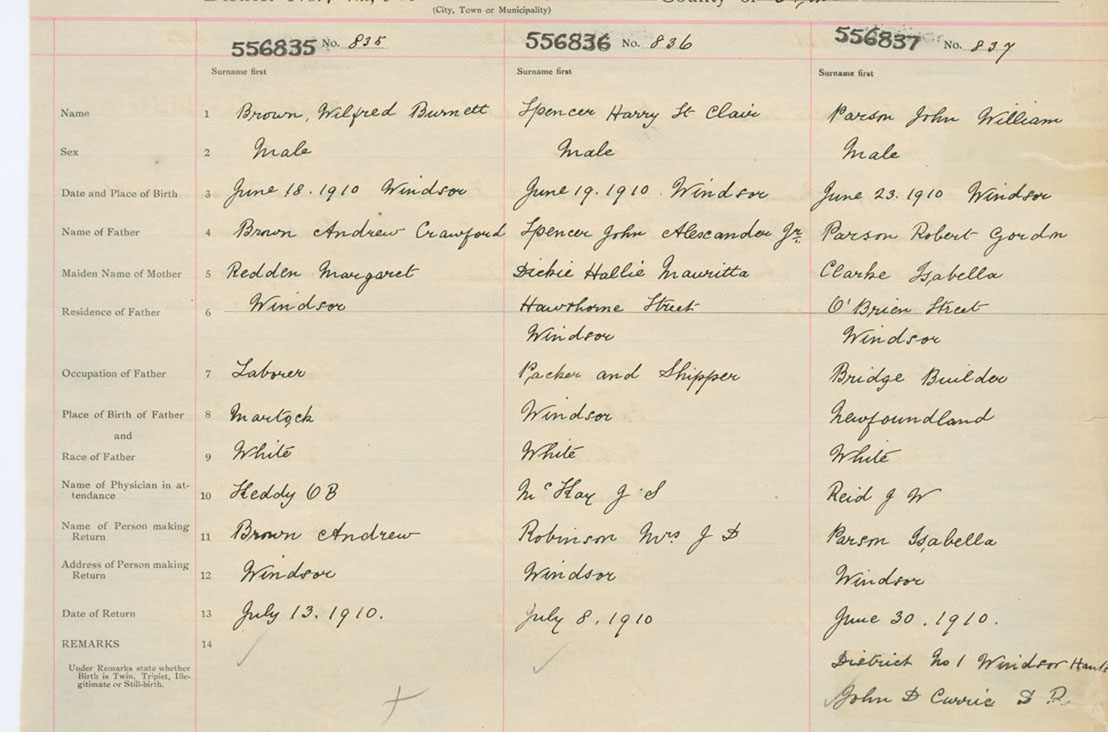 (City, Town or Municipality)
County of
556835 No. 835
556836 No. 836
556837 No. 837
Surname first
Surname first
Surname first
Name 1 Brown, Wilfred Burnett
Spencer Harry St Clair
Parson John William
Sex 2 Male
Male
Male
Date and Place of Birth 3 June 18. 1910 Windsor
June 19. 1910. Windsor
June 23. 1910 Windsor
Name of Father 4 Brown Andrew Crawford
Spencer John Alexander Jr.
Parson Robert Gordon
Maiden Name of Mother 5 Redden Margaret
Dickie Hallie Mauritta
Clarke Isabella
Residence of Father 6 Windsor
Hawthorne Street
Windsor
O'Brien Street
Windsor
Occupation of Father 7 Laborer
Packer and Shipper
Bridge Builder
Place of Birth of Father 8 Martock
Windsor
Newfoundland
and
Race of Father 9 White
White
White
Name of Physician in at-
tendance 10 Keddy O B
McKay J S
Reid J W
Name of Person making
Return 11 Brown Andrew
Robinson Mrs J D
Parson Isabella
Address of Person making
Return 12 Windsor
Windsor
Windsor
Date of Return 13 July 13. 1910.
July 8. 1910
June 30. 1910.
REMARKS 14
Under Remarks state whether
Birth is Twin, Triplet, Ille-
gitimate or Still-birth.
District No 1 Windsor Hants
John D Currie D R